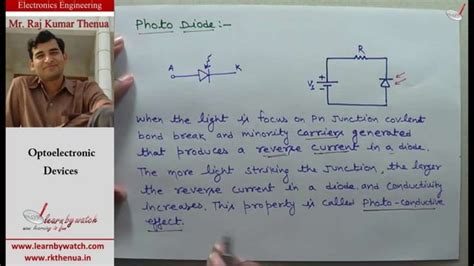 Electronics Engineering
Mr. Raj Kumar Thenua
Optoelectronic
Devices
learnbywatch
www.learnbywatch.com
www.rkthenua.in
Photo Diode:-
A K
R
Vs
When the light is focus on PN Junction covlent
bond break and minority carriers generated
that produces a reverse current in a diode.
The more light striking the Junction, the larger
the reverse current in a diode and conductivity
increases. This property is called Photo-conductive
effect.